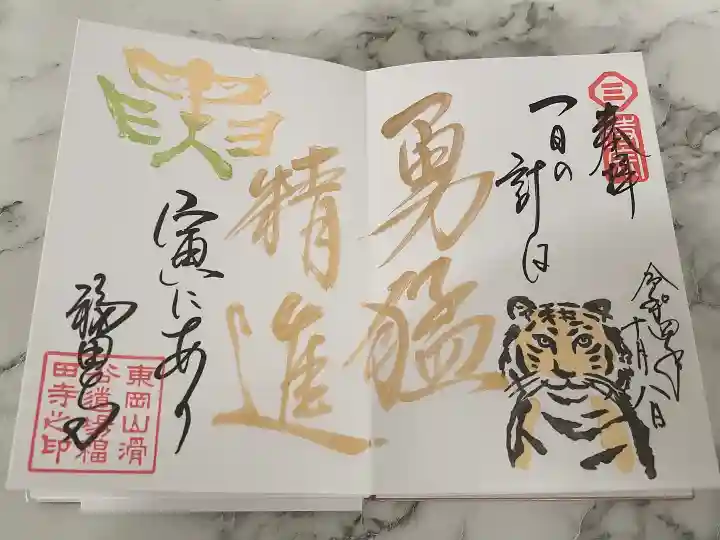 奉拝
令和四年
十月八日
一日の
計は
勇猛
精進
寅にあり
福田寺
東岡山滑
谷道場福
田寺之印